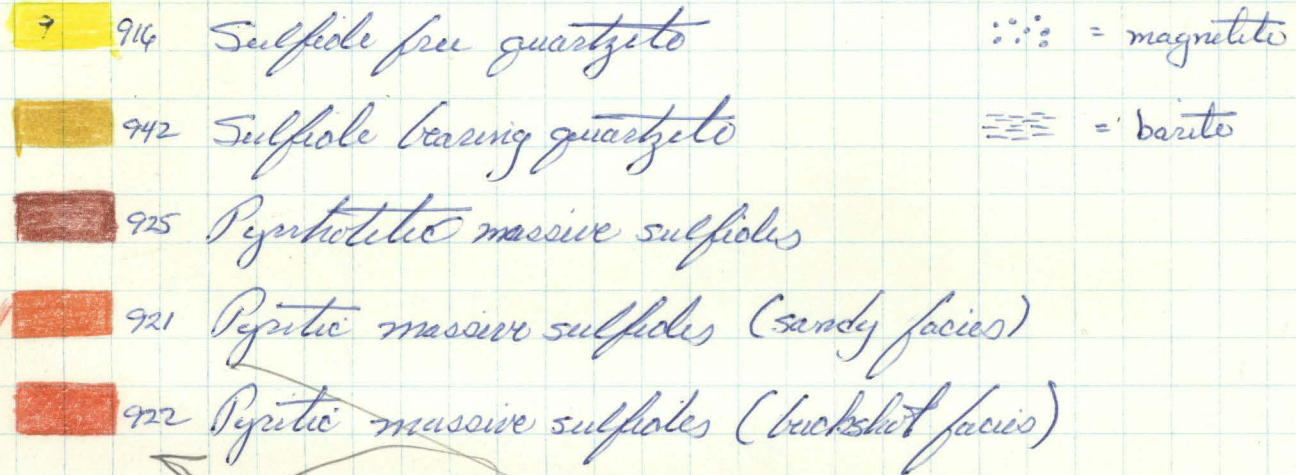 ? 916 Sulfide free quartzite = magnetite
942 Sulfide bearing quartzite = barite
925 Pyrrhotitic massive sulfides
921 Pyritic massive sulfides (sandy facies)
922 Pyritic massive sulfides (buckshot facies)